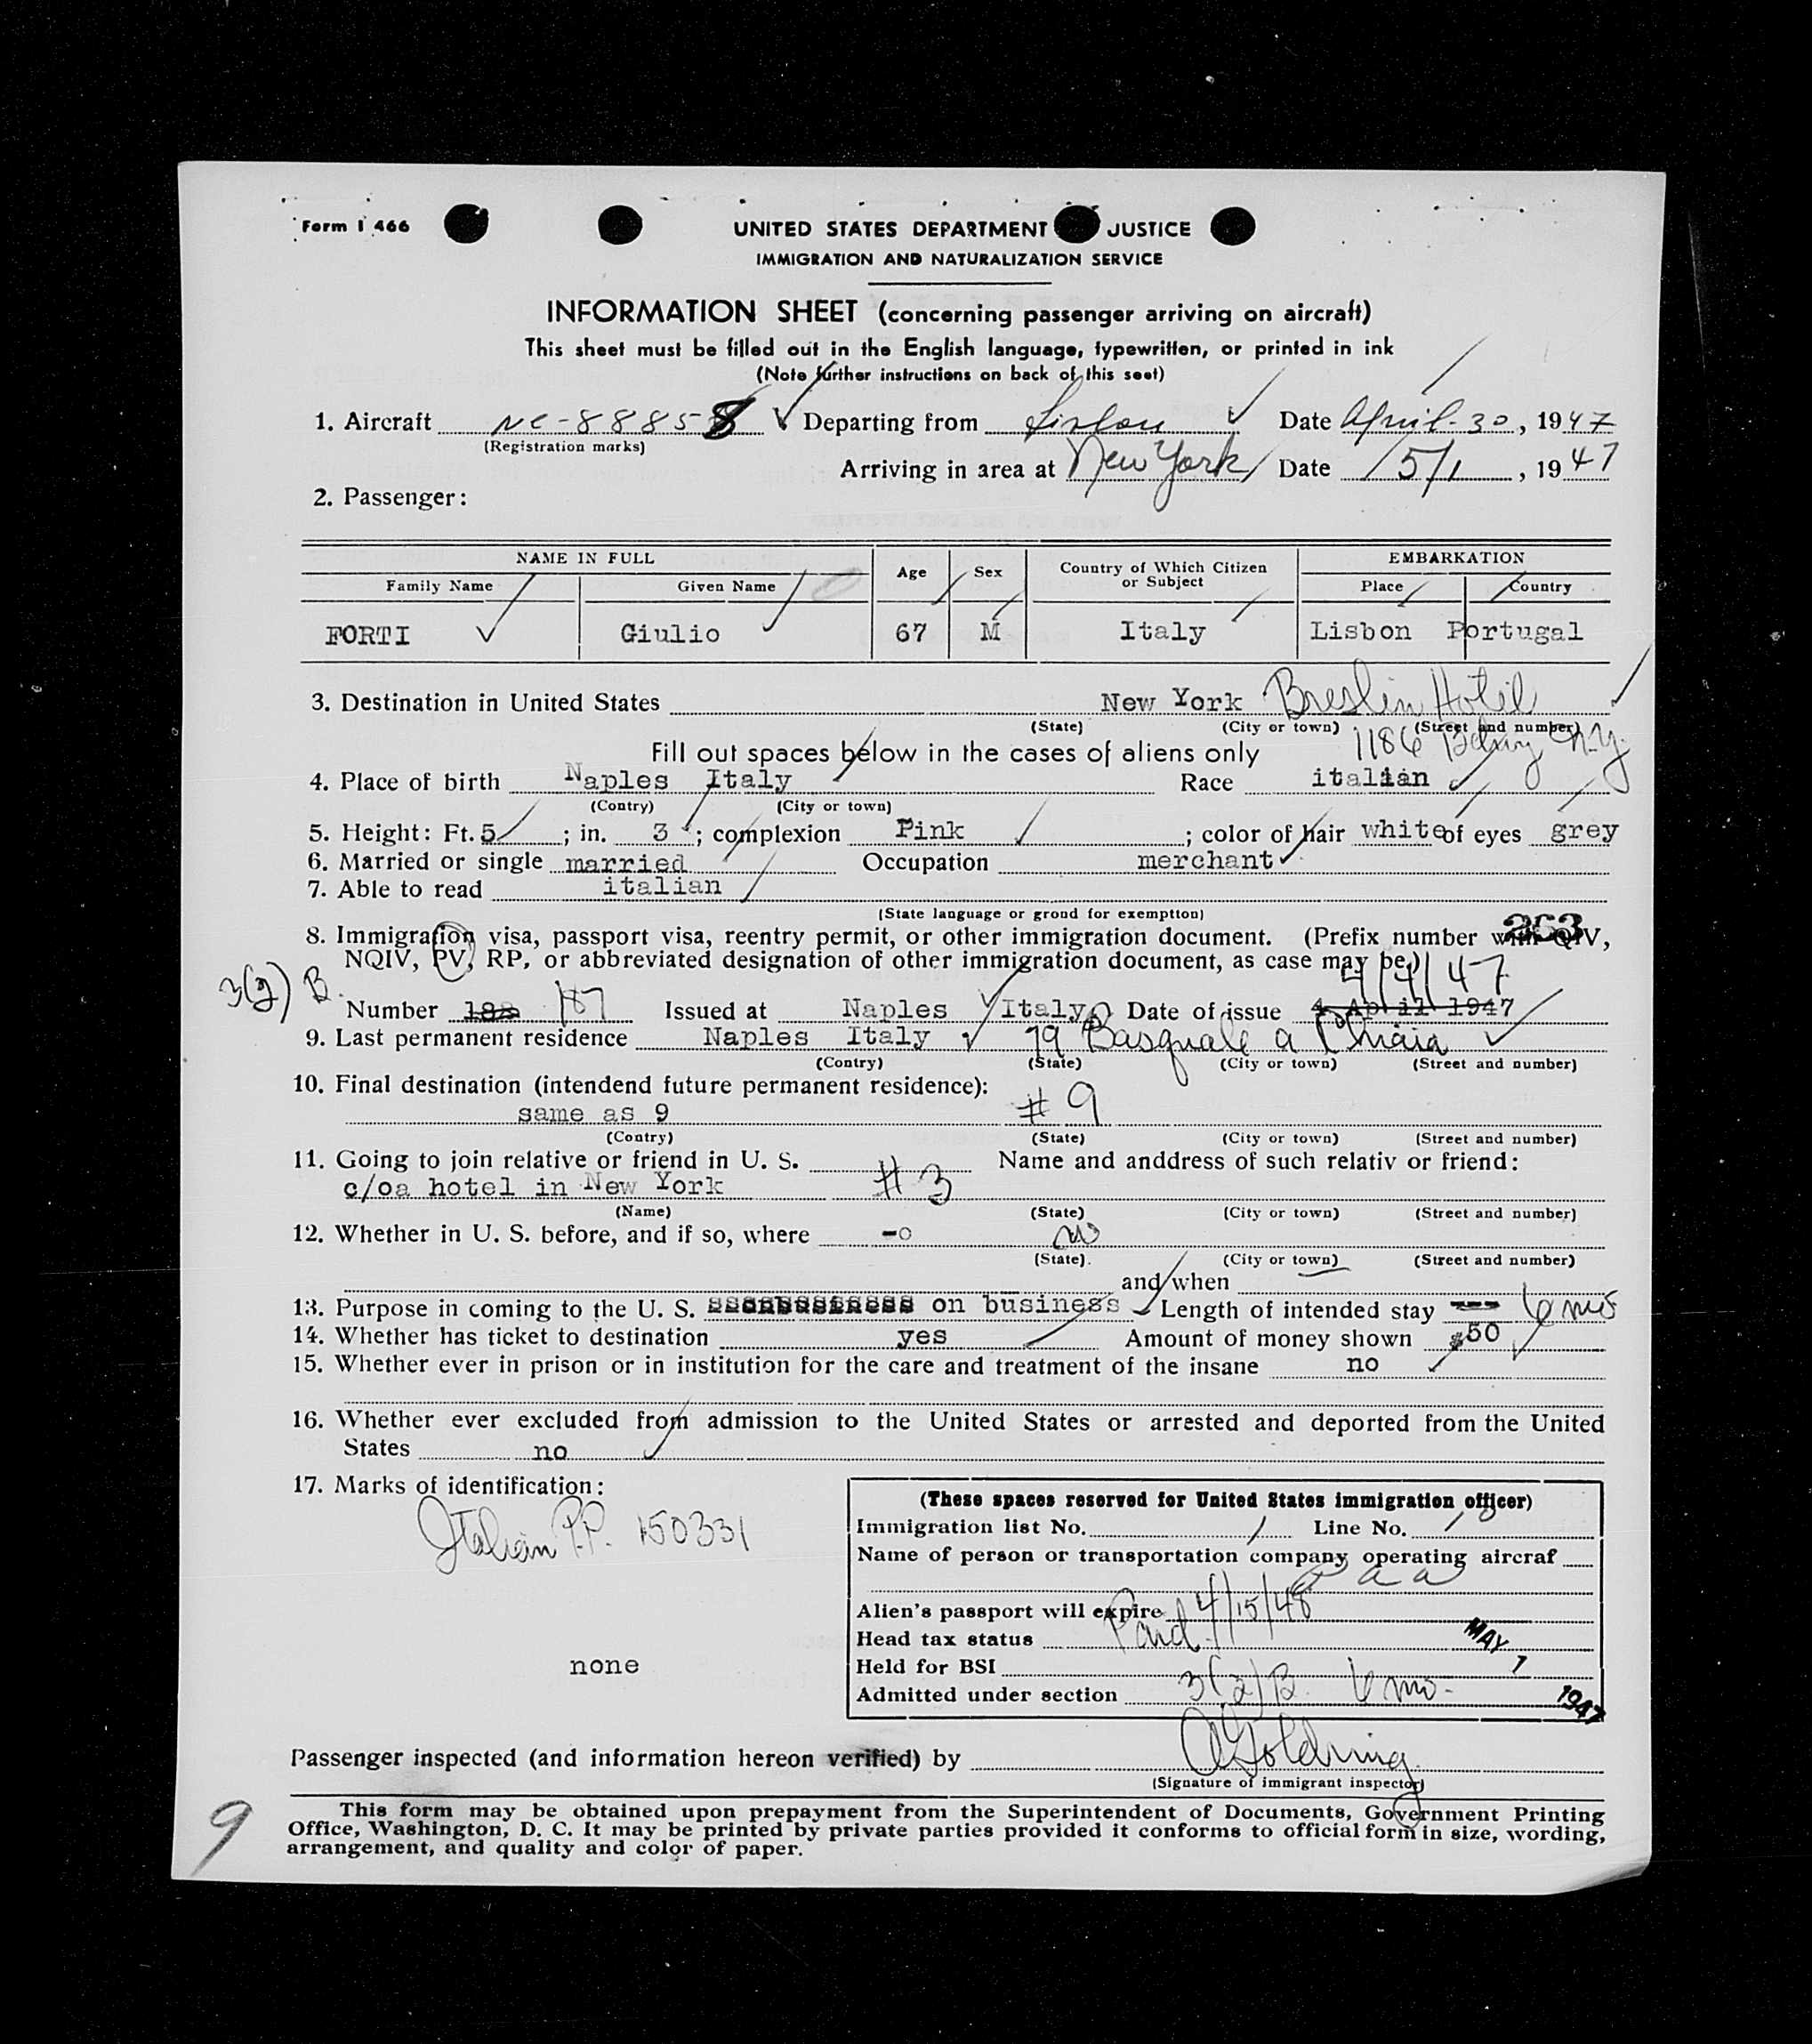 Form I 466
UNITED STATES DEPARTMENT JUSTICE
IMMIGRATION AND NATURALIZATION SERVICE
INFORMATION SHEET (concerning passenger arriving on aircraft)
This sheet must be filled out in the English language, typewritten, or printed in ink
(Note further instructions on back of this seet)
1. Aircraft NC-88858 Departing from Lisbon Date April-30, 1947
(Registration marks)
Arriving in area at New York Date 5/1, 1947
2. Passenger:
NAME IN FULL Age Sex Country of Which Citizen or Subject EMBARKATION
Family Name Given Name Place Country
FORTI Giulio 67 M Italy Lisbon Portugal
3. Destination in United States New York Breslin Hotel
(State) (City or town) (Street and number)
1186 N.Y.
Fill out spaces below in the cases of aliens only
4. Place of birth Naples Italy Race italian
(Contry) (City or town)
5. Height: Ft. 5 ; in. 3 ; complexion Pink ; color of hair white of eyes grey
6. Married or single married Occupation merchant
7. Able to read italian
(State language or grond for exemption)
263
8. Immigration visa, passport visa, reentry permit, or other immigration document. (Prefix number with QIV,
NQIV, PV, RP, or abbreviated designation of other immigration document, as case may be.)
3(2) B. 4/4/47
Number 187 Issued at Naples Italy Date of issue 4 April 1947
9. Last permanent residence Naples Italy 19 a Chiaia
(Contry) (State) (City or town) (Street and number)
10. Final destination (intendend future permanent residence):
same as 9 #9
(Contry) (State) (City or town) (Street and number)
11. Going to join relative or friend in U. S. Name and anddress of such relativ or friend:
c/oa hotel in New York #3
(Name) (State) (City or town) (Street and number)
12. Whether in U. S. before, and if so, where -o no
(State). (City or town) (Street and number)
and when
13. Purpose in coming to the U. S. on business Length of intended stay --- 6 mo
14. Whether has ticket to destination yes Amount of money shown $50
15. Whether ever in prison or in institution for the care and treatment of the insane no
16. Whether ever excluded from admission to the United States or arrested and deported from the United
States no
17. Marks of identification:
Italian P.P. 150331
none
(These spaces reserved for United States immigration officer)
Immigration list No. 1 Line No. 18
Name of person or transportation company operating aircraf
P a a
Alien's passport will expire 4/15/48
Head tax status Paid
MAY 1 1947
Held for BSI
Admitted under section 3(2)B. 6 mo.
Passenger inspected (and information hereon verified) by A Goldring
(Signature of immigrant inspector)
9
This form may be obtained upon prepayment from the Superintendent of Documents, Government Printing
Office, Washington, D. C. It may be printed by private parties provided it conforms to official form in size, wording,
arrangement, and quality and color of paper.